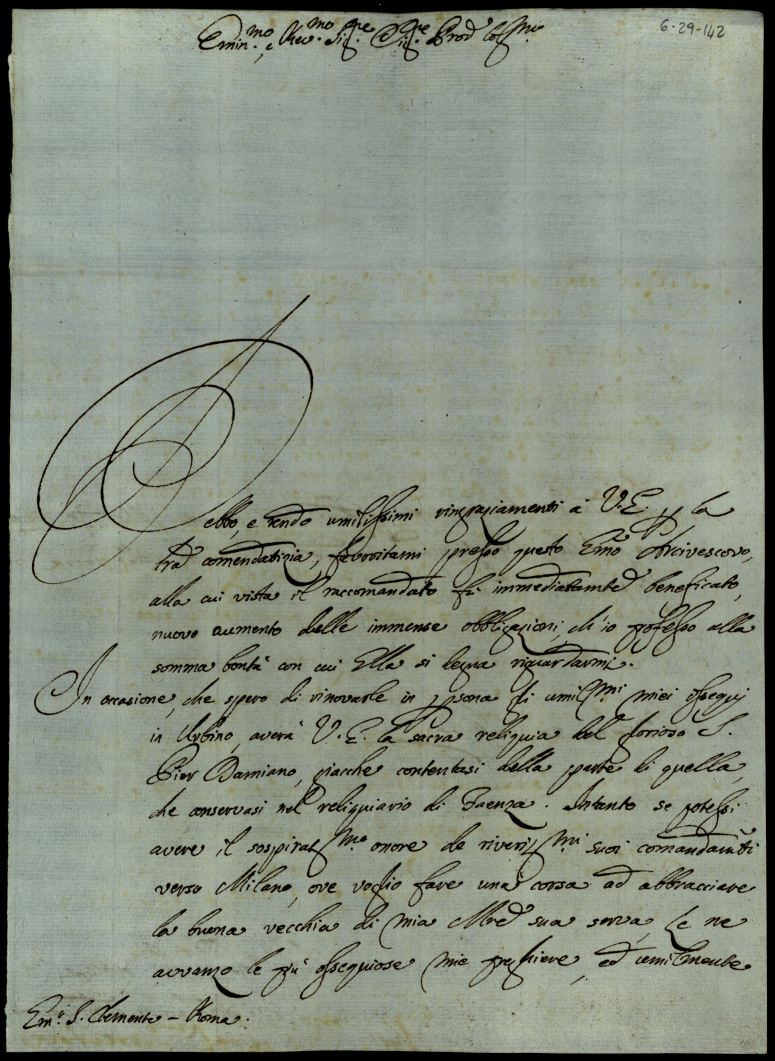 6-29-142
Emin.mo e Rev.mo Sig.re Sig.re Prõe Col.mo
Debbo, e rendo umilissimi ringraziamenti à V. E. per la
tra comendatizia, favoritami presso questo Emõ Arcivescovo,
alla cui vista il raccomandato fù immediatamte beneficato,
nuovo aumento delle immense obbligazioni, ch'io professo alla
somma bontà con cui Ella si degna riguardarmi.
In occasione, che spero di rinovarle in psona gl'umil.mi miei ossequj
in Urbino, averà V. E. la sacra reliquia del glorioso S.
Pier Damiano, giacche contentasi della parte di quella,
che conservasi nel reliquiario di Faenza. Intanto se potessi
avere il sospirat.mo onore de riverit.mi suoi comandamti
verso Milano, ove voglio fare una corsa ad abbracciare
la buona vecchia di mia Mrẽ sua serva, Le ne
avvanzo le più ossequiose mie preghiere, ed umilmente
Em.o S. Clemente – Roma.